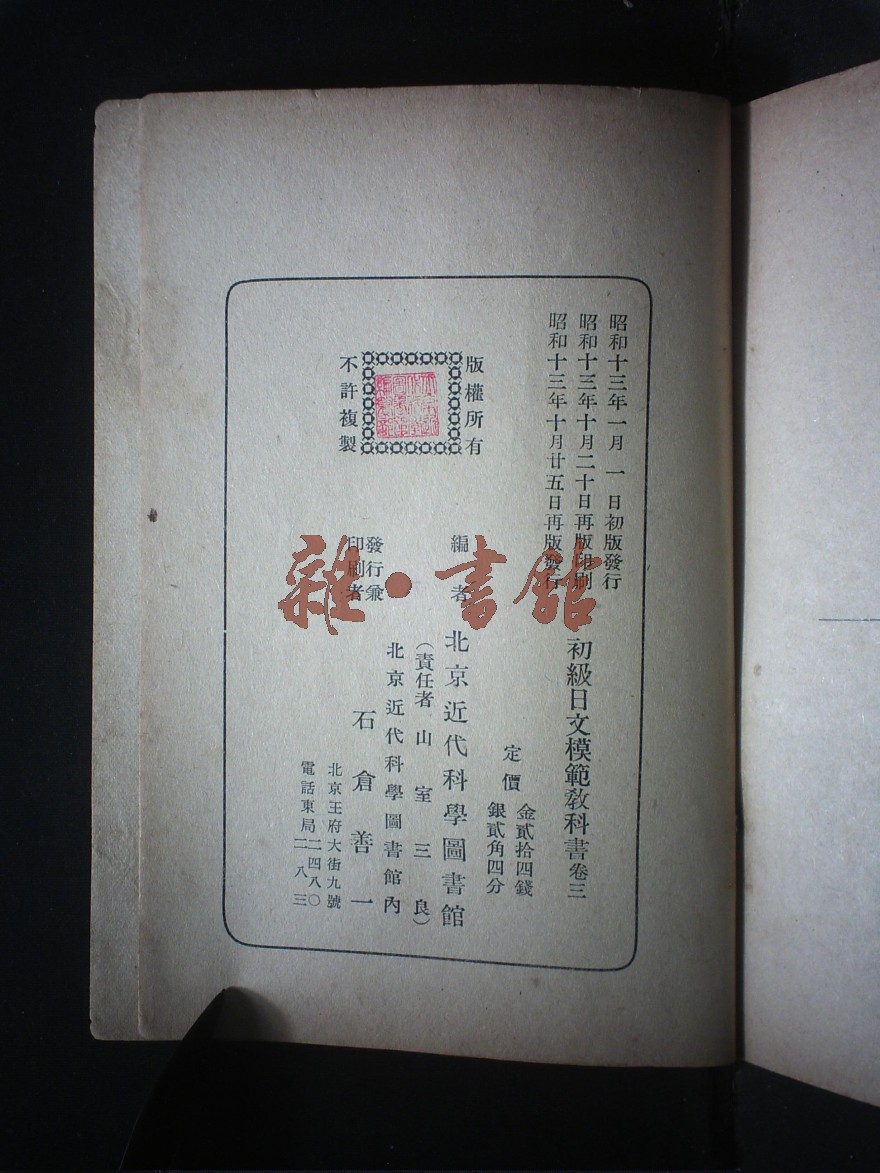 昭和十三年一月一日初版發行
昭和十三年十月二十日再版印刷
昭和十三年十月廿五日再版發行
初級日文模範敎科書卷三
定價
金貳拾四錢
銀貳角四分
版權所有
不許複製
編者
北京近代科學圖書館
(責任者 山室三良)
發行兼
印刷者
北京近代科學圖書館內
石倉善一
北京王府大街九號
電話東局
二四八〇
二八三
雜·書館